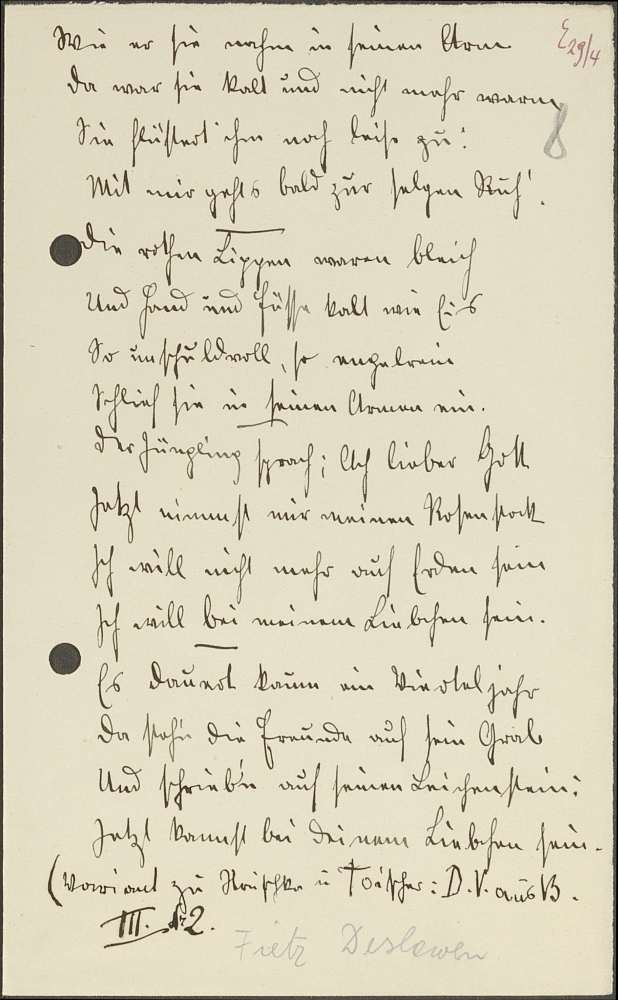 Wie er sie nahm in seinen Arm
E 29/4
da war sie kalt und nicht mehr warm
8
Sie flüstert ihm noch leise zu:
Mit mir gehts bald zur selgen Ruh'.
Die rothen Lippen waren bleich
Und Hand und Füsse kalt wie Eis
So unschuldvoll, so engelrein
Schlief sie in seinen Armen ein.
Der Jüngling sprach; Ach lieber Gott
Jetzt nimmst mir meinen Rosenstock
Ich will nicht mehr auf Erden sein
Ich will bei meinem Liebchen sein.
Es dauert kaum ein Vierteljahr
Da steh'n die Freunde auf sein Grab
Und schrieb'n auf seinen Leichenstein:
Jetzt kannst bei deinem Liebchen sein.
(Variant zu Hruschka u Toischer: D. V. aus B.
III. Nr 2.
Fietz Deslawen